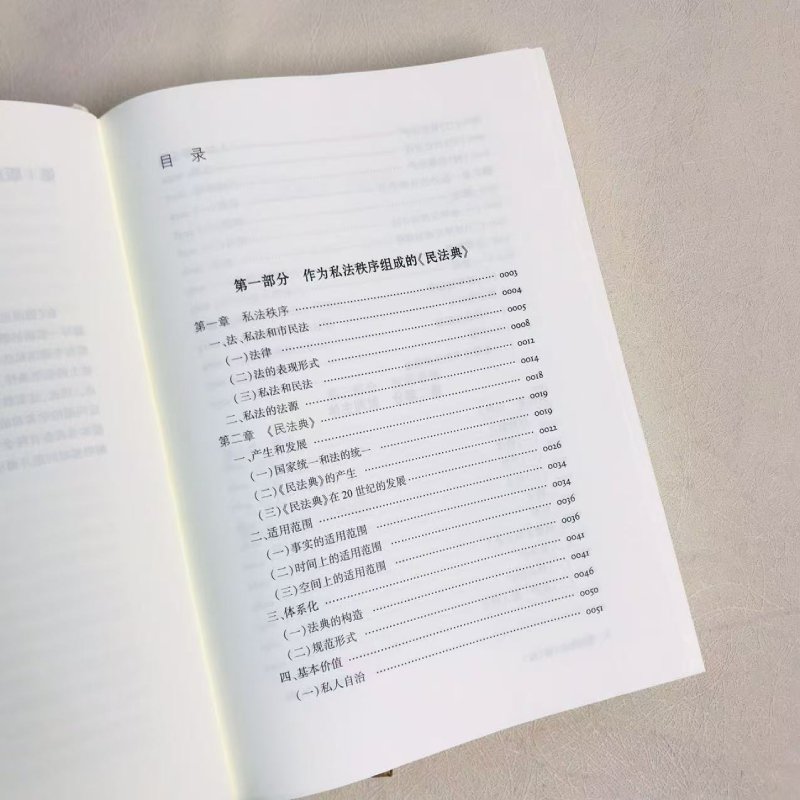 目 录
第一部分 作为私法秩序组成的《民法典》
第一章 私法秩序 …… 0003
一、法、私法和市民法 …… 0004
(一)法律 …… 0005
(二)法的表现形式 …… 0008
(三)私法和民法 …… 0012
二、私法的法源 …… 0014
第二章 《民法典》 …… 0018
一、产生和发展 …… 0019
(一)国家统一和法的统一 …… 0019
(二)《民法典》的产生 …… 0022
(三)《民法典》在20世纪的发展 …… 0026
二、适用范围 …… 0034
(一)事实的适用范围 …… 0034
(二)时间上的适用范围 …… 0036
(三)空间上的适用范围 …… 0036
三、体系化 …… 0041
(一)法典的构造 …… 0041
(二)规范形式 …… 0046
四、基本价值 …… 0050
(一)私人自治 …… 0051